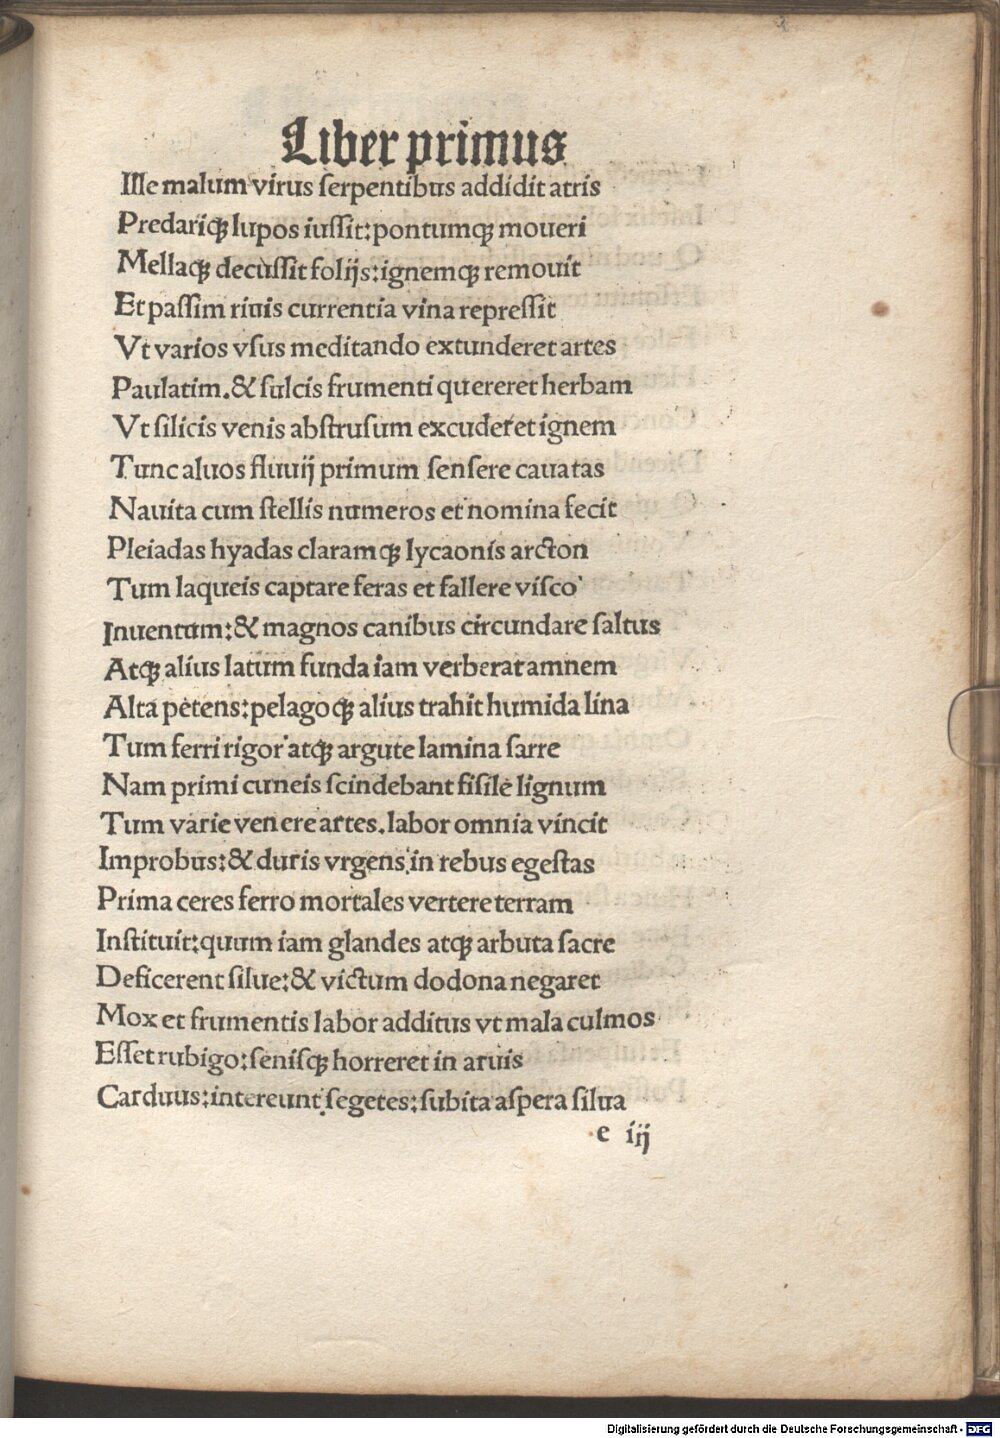 Liber primus
Ille malum virus ſerpentibus addidit atris
Predariqꝫ lupos iuſſit: pontumqꝫ moueri
Mellaqꝫ decuſſit folijs: ignemqꝫ remouit
Et paſſim riuis currentia vina repreſſit
Vt varios vſus meditando extunderet artes
Paulatim. & ſulcis frumenti quereret herbam
Vt ſilicis venis abſtruſum excuderet ignem
Tunc aluos fluuij primum ſenſere cauatas
Nauita cum ſtellis numeros et nomina fecit
Pleiadas hyadas claramqꝫ lycaonis arcton
Tum laqueis captare feras et fallere viſco
Inuentum: & magnos canibus circundare ſaltus
Atqꝫ alius latum funda iam verberat amnem
Alta petens: pelagoqꝫ alius trahit humida lina
Tum ferri rigor atqꝫ argute lamina ſarre
Nam primi cuneis ſcindebant fiſile lignum
Tum varie venere artes. labor omnia vincit
Improbus: & duris vrgens in rebus egeſtas
Prima ceres ferro mortales vertere terram
Inſtituit: quum iam glandes atqꝫ arbuta ſacre
Deficerent ſilue: & victum dodona negaret
Mox et frumentis labor additus vt mala culmos
Eſſet rubigo: ſeniſqꝫ horreret in aruis
Carduus: intereunt ſegetes: ſubita aſpera ſilua
e iij
Digitalisierung gefördert durch die Deutsche Forschungsgemeinschaft - DFG